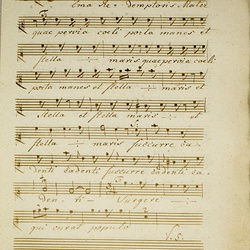 Alma Re- demptoris Mater
quae pervia coeli porta manes et
stella maris quae pervia coeli
porta manes et stella maris
stella et stella maris et
stella maris succurre ca-
denti cadenti succurre cadenti ca-
den- ti Surgere
qui curat populo
V. S.